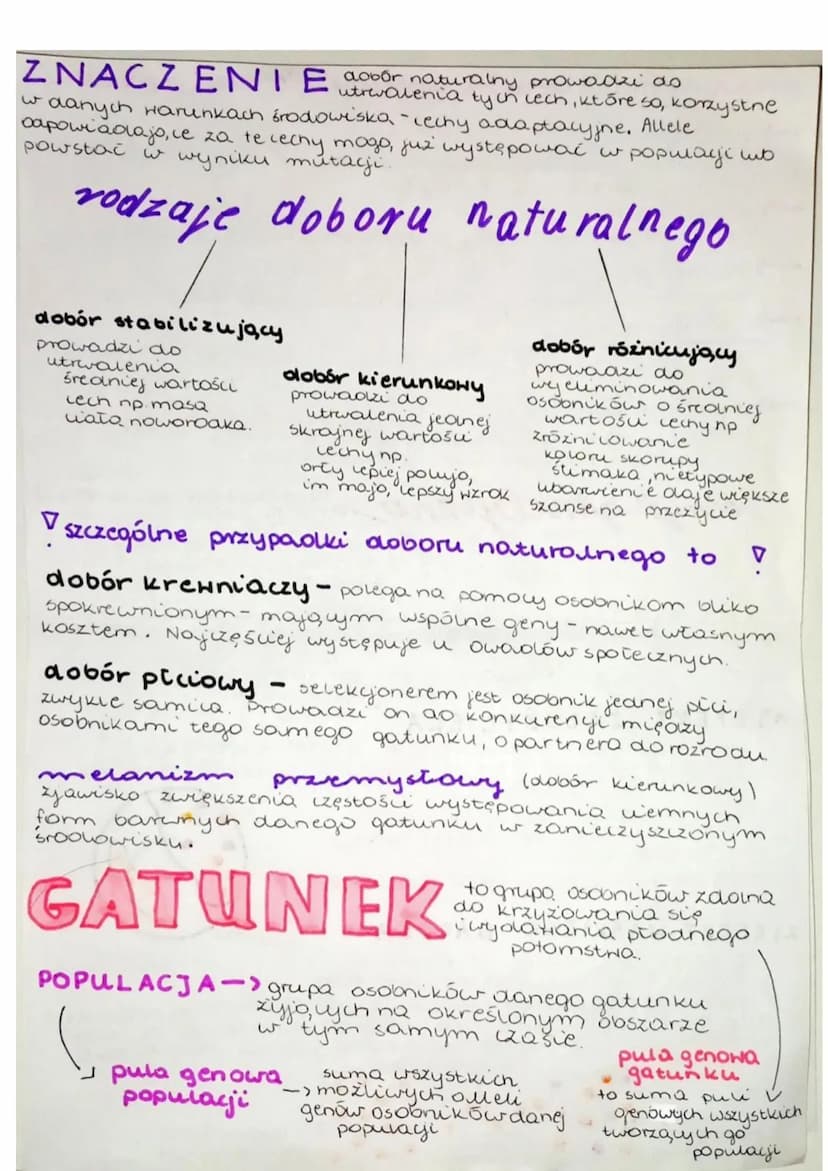 ZNACZENIE dobór naturalny prowadzi do
utrwalenia tych cech, które są korzystne
w danych warunkach środowiska - cechy adaptacyjne. Allele
odpowiadające za te cechy mogą już występować w populacji lub
powstać w wyniku mutacji.
rodzaje doboru naturalnego
dobór stabilizujący
prowadzi do
utrwalenia
średniej wartości
cech np. masa
ciała noworodka.
dobór kierunkowy
prowadzi do
utrwalenia jednej
skrajnej wartości
cechy np.
orły lepiej polują,
im mają lepszy wzrok
dobór różnicujący
prowadzi do
wyeliminowania
osobników o średniej
wartości cechy np
zróżnicowanie
koloru skorupy
ślimaka, nietypowe
ubarwienie daje większe
szanse na przeżycie
! szczególne przypadki doboru naturalnego to !
dobór krewniaczy - polega na pomocy osobnikom blisko
spokrewnionym - mającym wspólne geny - nawet własnym
kosztem. Najczęściej występuje u owadów społecznych.
dobór płciowy - selekcjonerem jest osobnik jednej płci,
zwykle samica. Prowadzi on do konkurencji między
osobnikami tego samego gatunku, o partnera do rozrodu.
melanizm przemysłowy (dobór kierunkowy)
zjawisko zwiększenia częstości występowania ciemnych
form barwnych danego gatunku w zanieczyszczonym
środowisku.
GATUNEK to grupa osobników zdolna
do krzyżowania się
i wydawania płodnego
potomstwa.
POPULACJA -> grupa osobników danego gatunku
żyjących na określonym obszarze
w tym samym czasie.
pula genowa
populacji
-> suma wszystkich
możliwych alleli
genów osobników danej
populacji
pula genowa
gatunku
to suma puli
genowych wszystkich
tworzących go
populacji